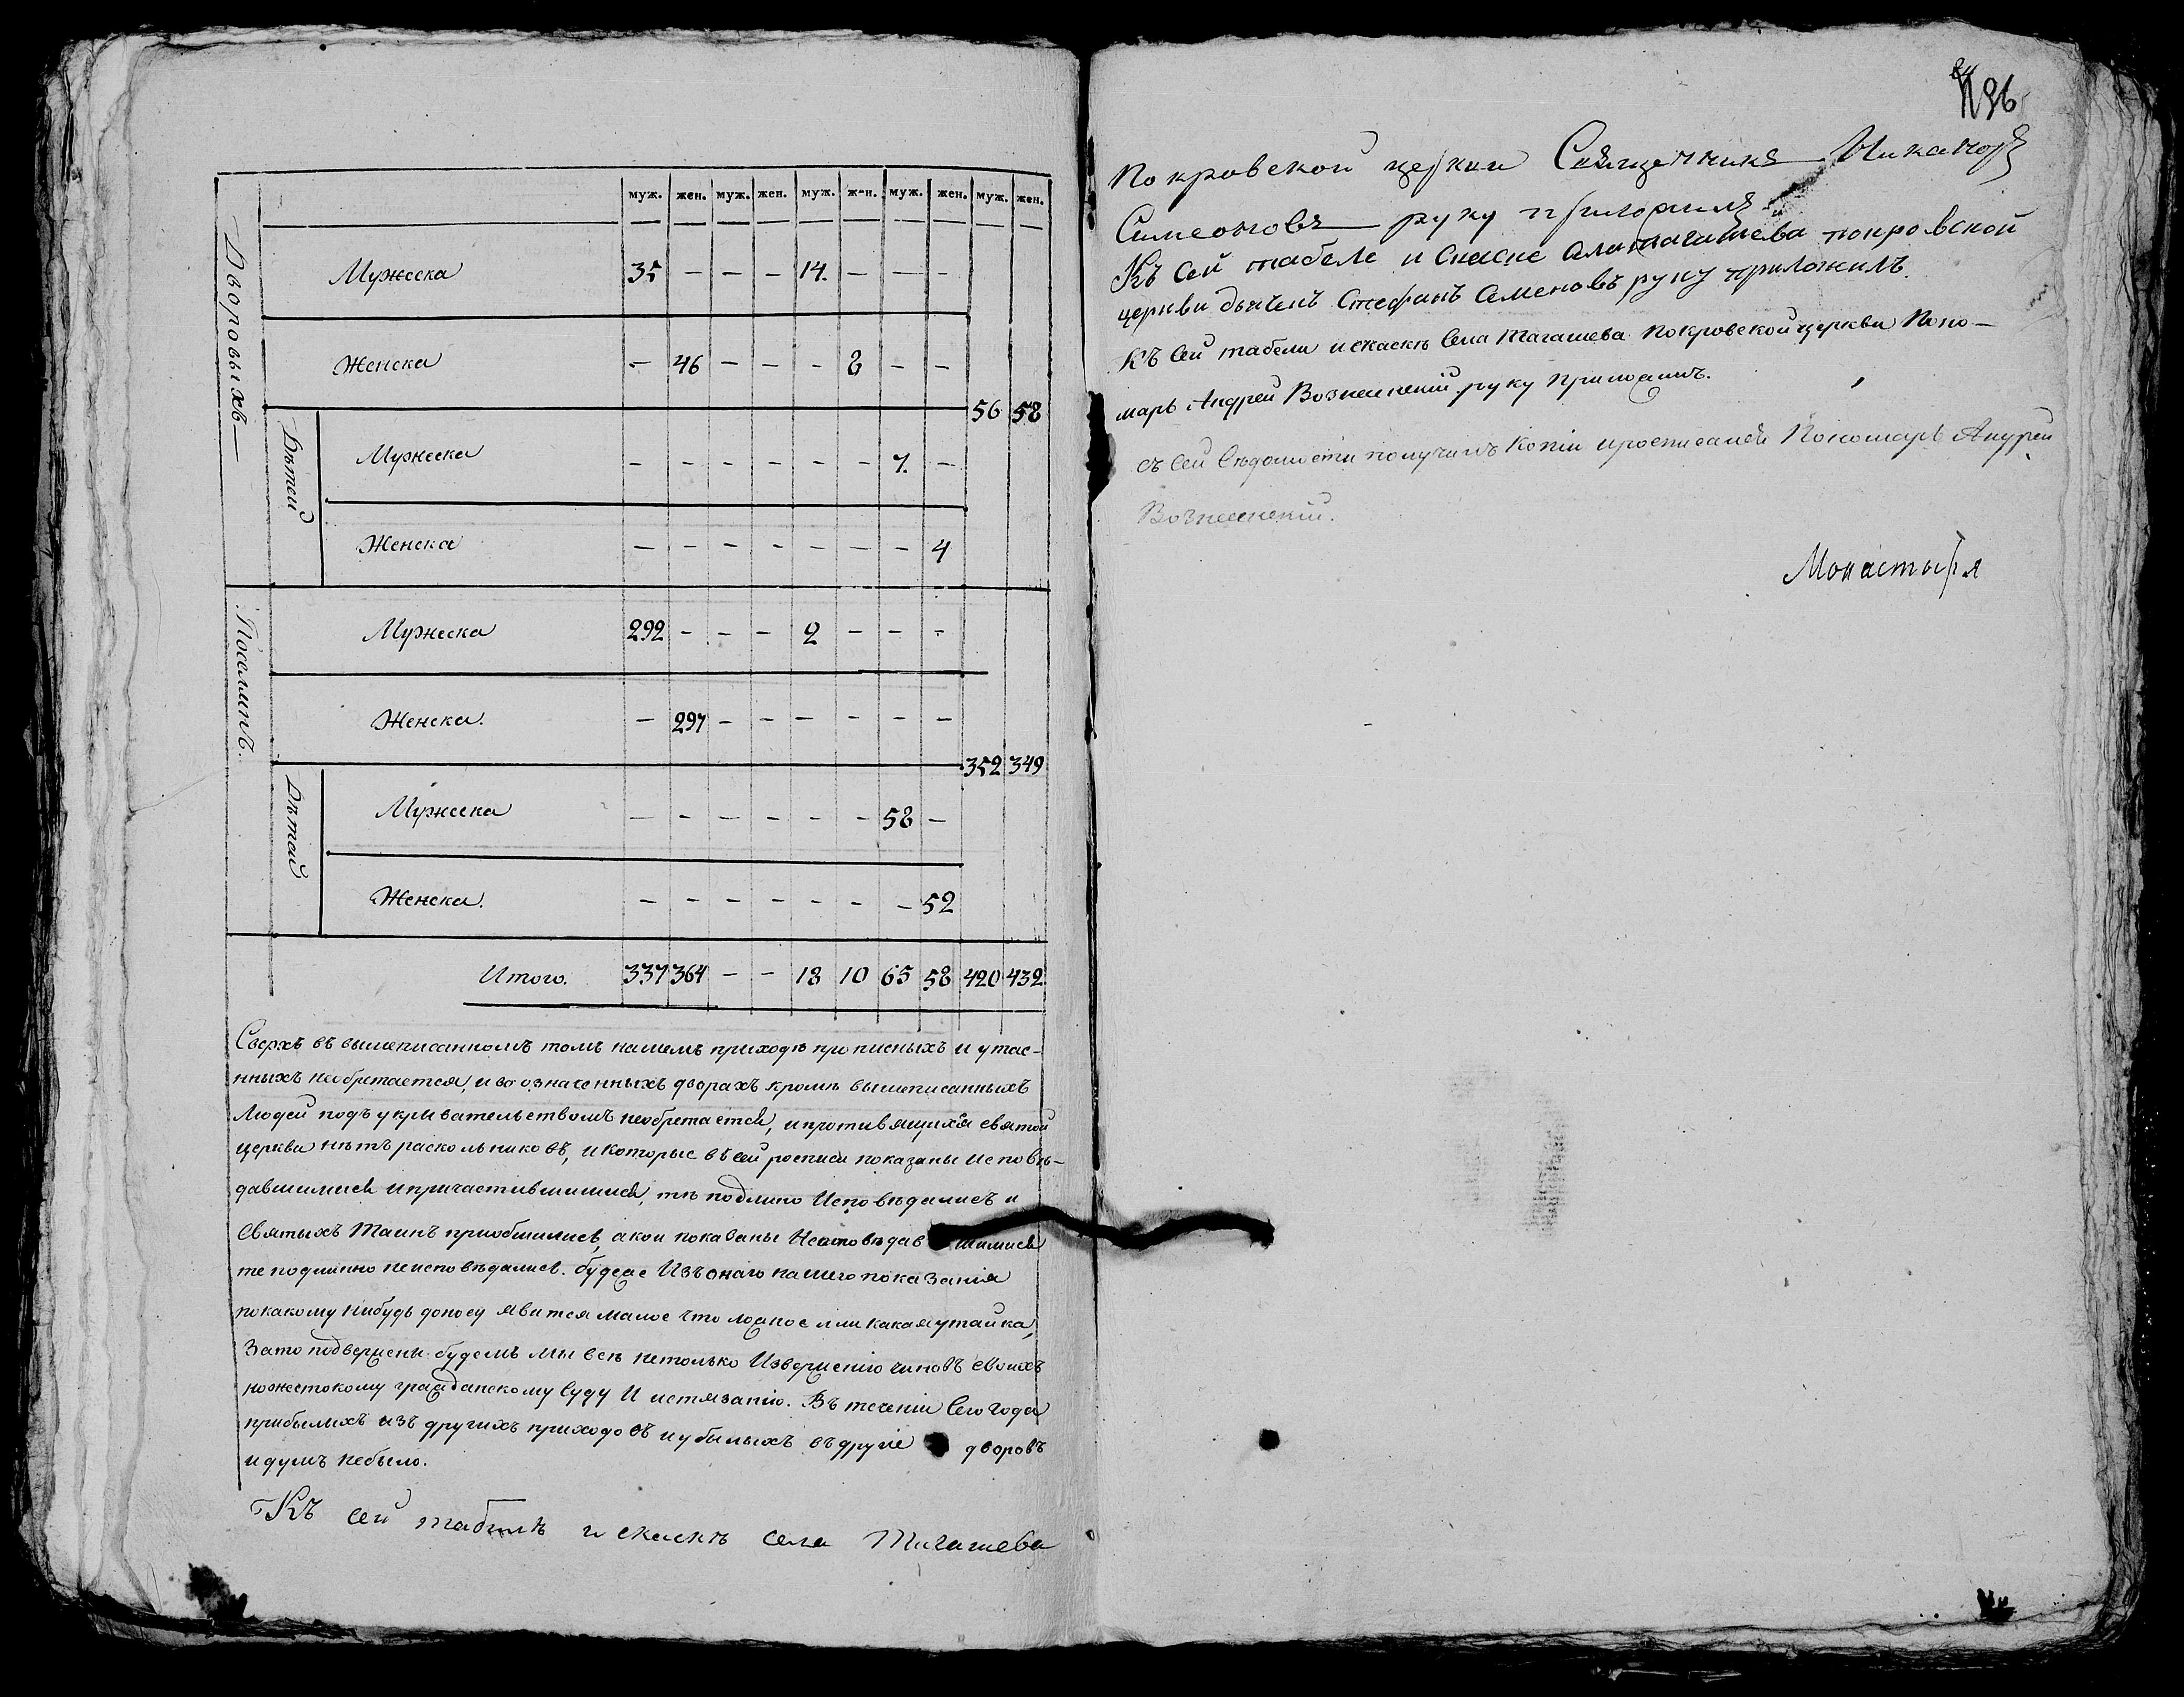 муж. жен. муж. жен. муж. жен. муж. жен. муж. жен.
Дворовыхъ
Мужеска 35 – – – 14. – – –
Женска – 46 – – – 8 – –
56 58
Дѣтей
Мужеска – – – – – – 7. –
Женска – – – – – – – 4
Поселянъ.
Мужеска 292 – – – 2 – – –
Женска. – 297 – – – – – –
352 349
Дѣтей
Мужеска – – – – – – 58 –
Женска. – – – – – – – 52
Итого. 337 364 – – 18 10 65 58 420 432
Сверхъ въ вышеписанномъ томъ нашемъ приходѣ прописныхъ и утае-
нныхъ необретается, и во означенныхъ дворахъ кромѣ вышеписанныхъ
людей подъ укривательствомъ необретается, и противящихся святой
церкви нѣтъ раскольниковъ, и которые въ сей росписи показаны исповѣ-
давшимися и причастившимися, тѣ подлино исповѣдались и
Святыхъ Таинъ приобшились, а кои показаны неисповѣдавшимися
те подлинно неисповѣдались. будеже изъ онаго нашего показанія
покакому нибудь доносу явится малое что ложное или какая утайка,
зато подвержены будемъ мы всѣ нетолько извержению чиновъ своихъ
но жестокому гражданскому суду и истязанію. Въ теченіи сего года
прибылихъ изъ другихъ приходовъ и убылыхъ въ другіе дворовъ
и душъ небыло.
Къ сей табелѣ и скаскѣ села Тагашева
496
Покровской церкви Священникъ Никаноръ
Симеоновъ руку приложилъ
Къ сей табеле и скаске села тагашева покровской
церкви дьячекъ Стефанъ Семеновъ руку приложилъ.
Къ сей табели и скаскѣ села Тагашева Покровской церкви Поно-
марь Андрей Вознесенскій руку приложилъ.
съ сей вѣдомости получилъ копіи и росписался Пономарь Андрей
Вознесенскій.
Монастыря